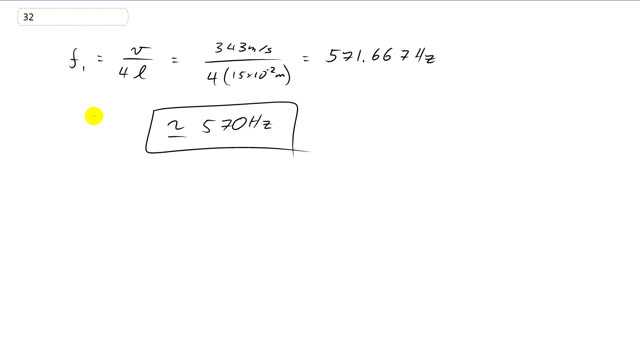 32
f₁ = v / 4l = 343m/s / 4(15×10⁻²m) = 571.667Hz
≃ 570Hz